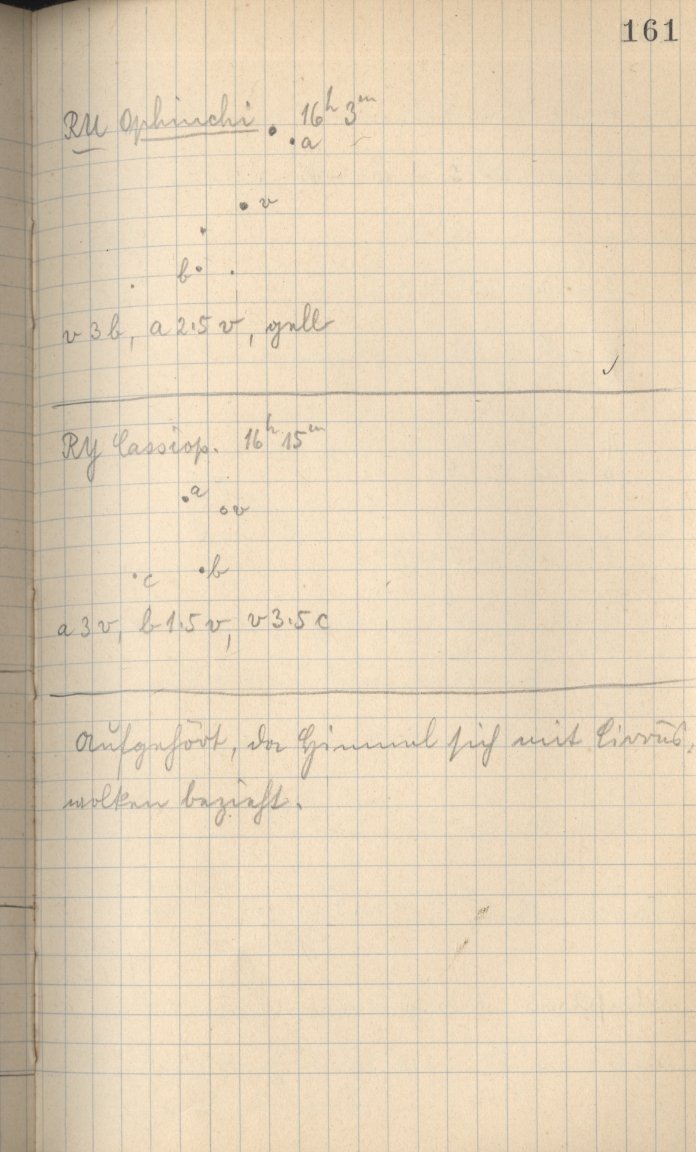 161
RU Ophiuchi 16h 3m
a
v
b
v 3 b, a 2.5 v, gelb
RY Cassiop. 16h 15m
a
v
c b
a 3 v, b 1.5 v, v 3.5 c
Aufgehört, da Himmel sich mit Cirrus,
wolken bezieht.